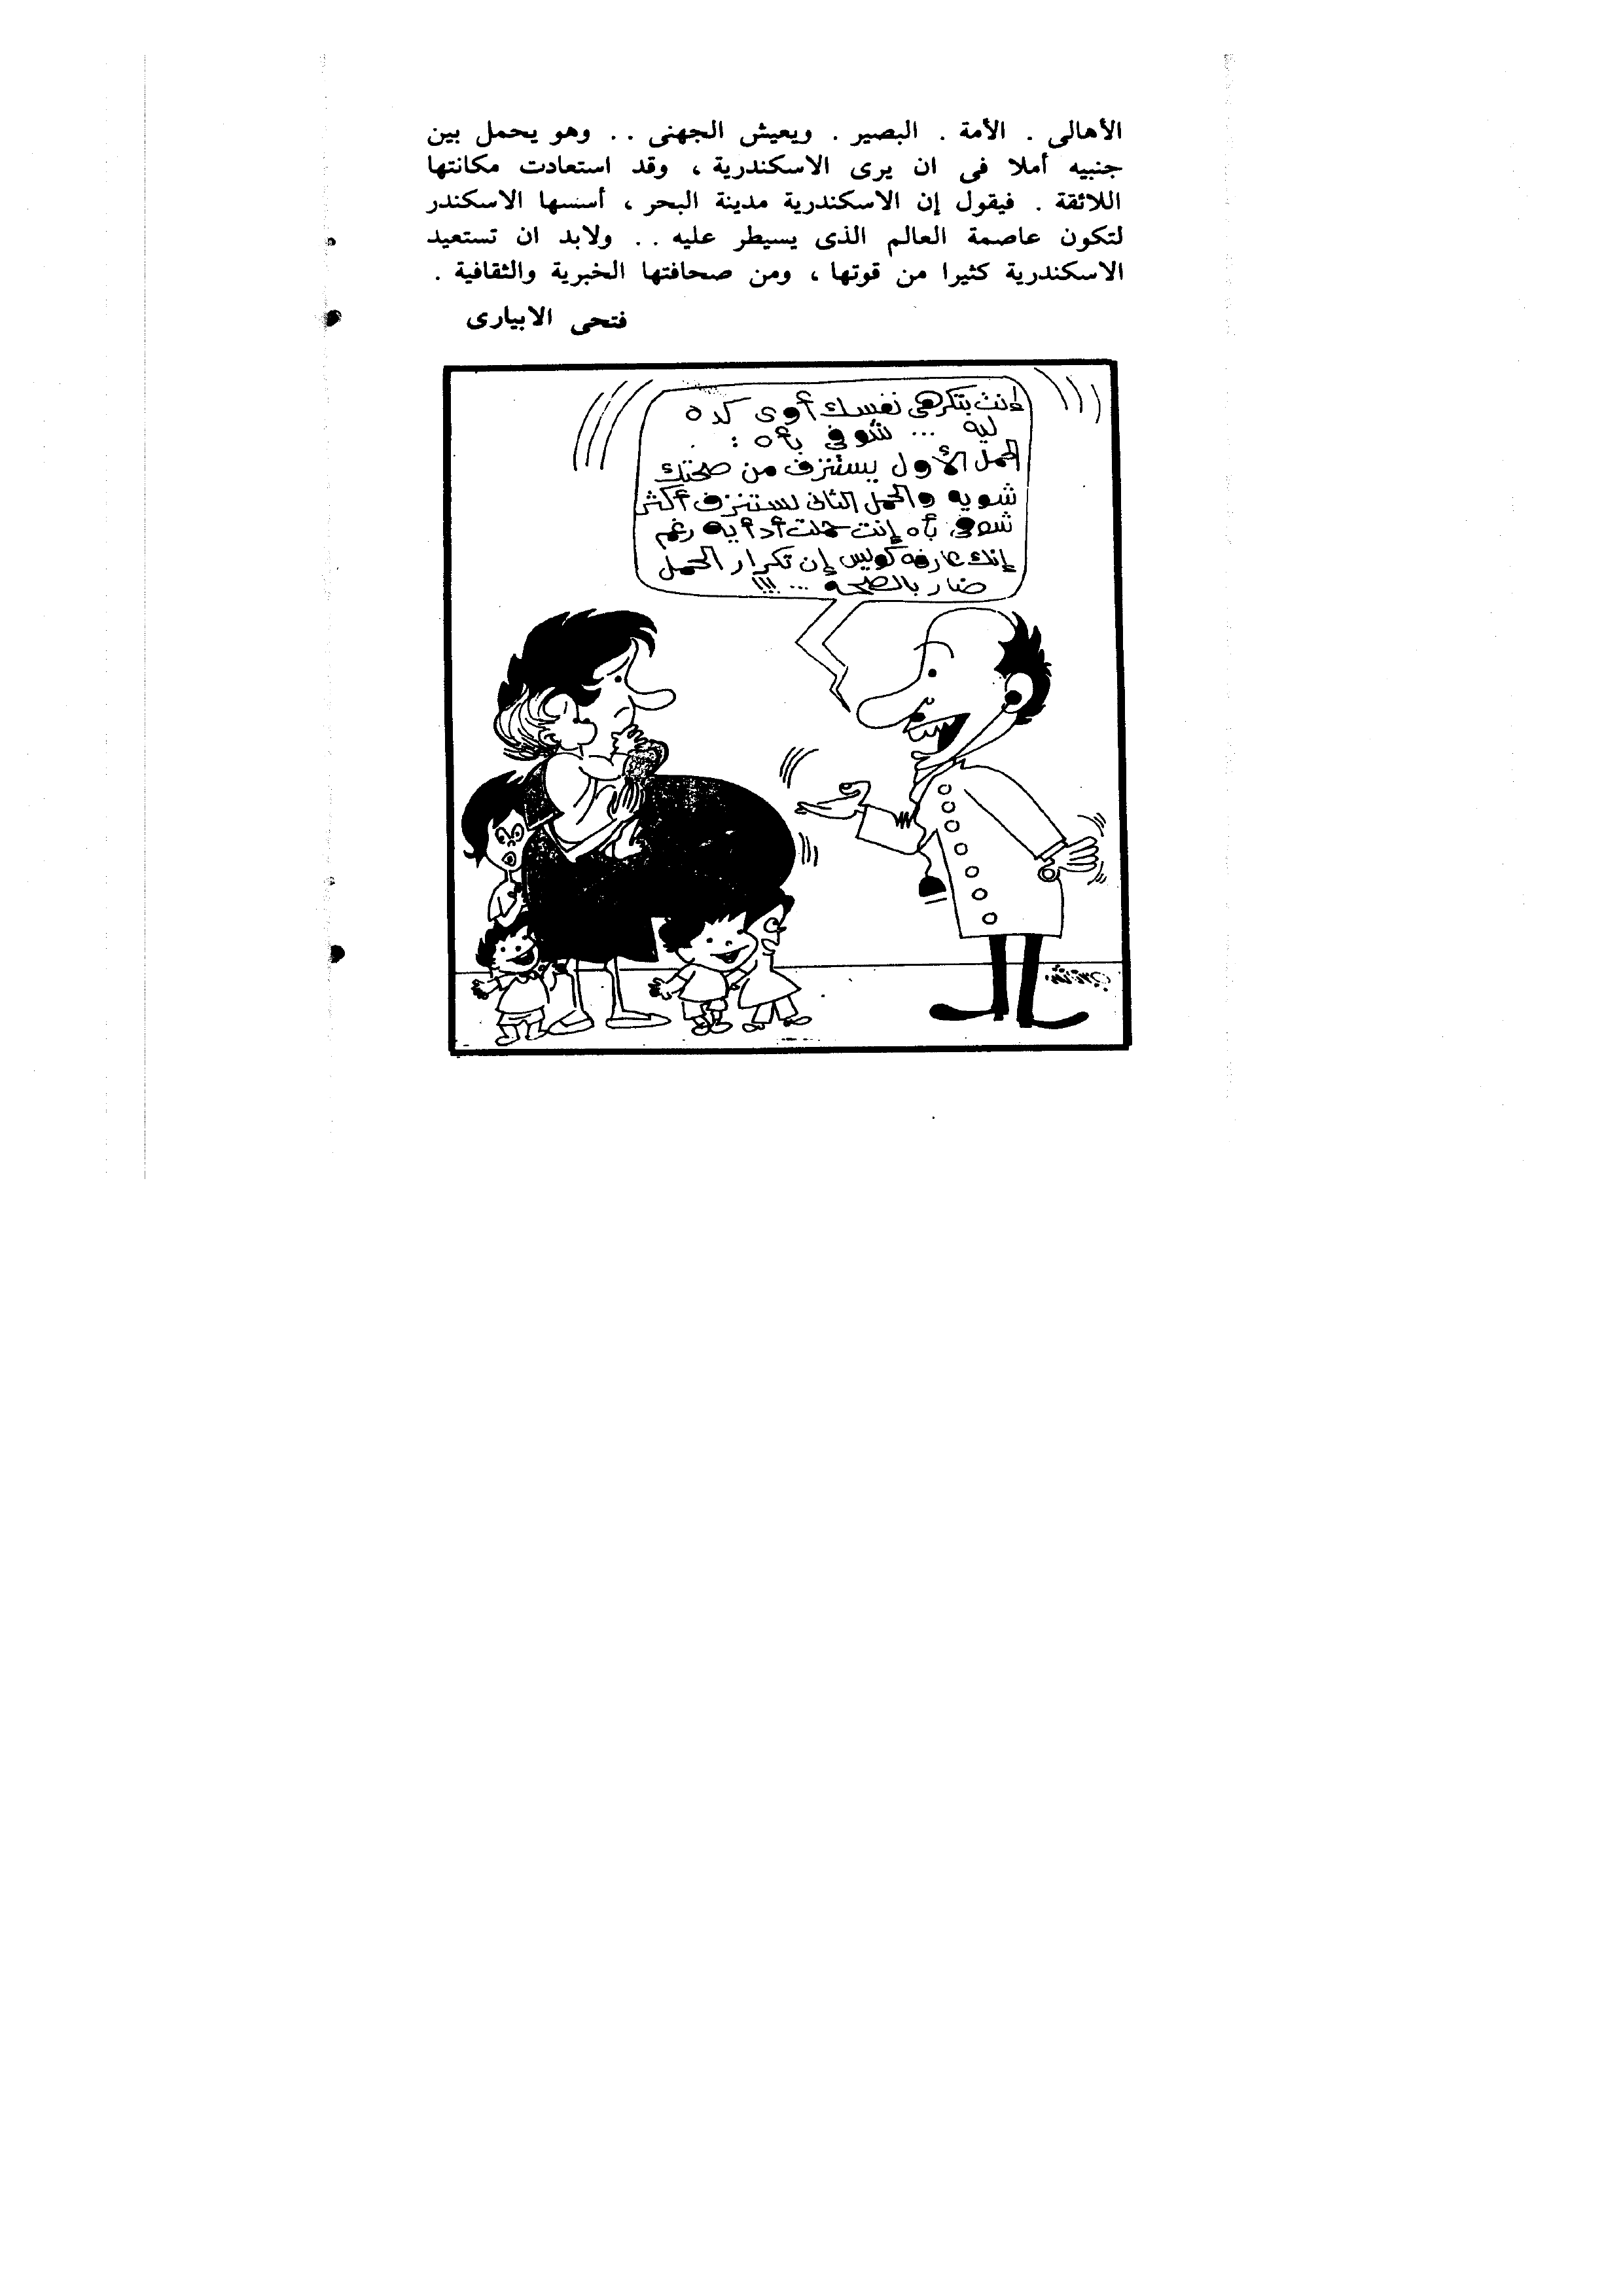 الأهالى . الأمة . البصير . ويعيش الجهنى . . وهو يحمل بين
جنبيه أملا فى ان يرى الاسكندرية ، وقد استعادت مكانتها
اللائقة . فيقول إن الاسكندرية مدينة البحر ، أسسها الاسكندر
لتكون عاصمة العالم الذى يسيطر عليه . . ولابد ان تستعيد
الاسكندرية كثيرا من قوتها ، ومن صحافتها الخبرية والثقافية .
فتحى الابيارى
إنت بتكرهى نفسك أوى كده
ليه ... شوفى بأه :
الحمل الأول يستنزف من صحتك
شويه والحمل الثانى يستنزف أكثر
شوفى بأه إنت حملت أد أيه رغم
إنك عارفه كويس إن تكرار الحمل
ضار بالصحه ... !!!!